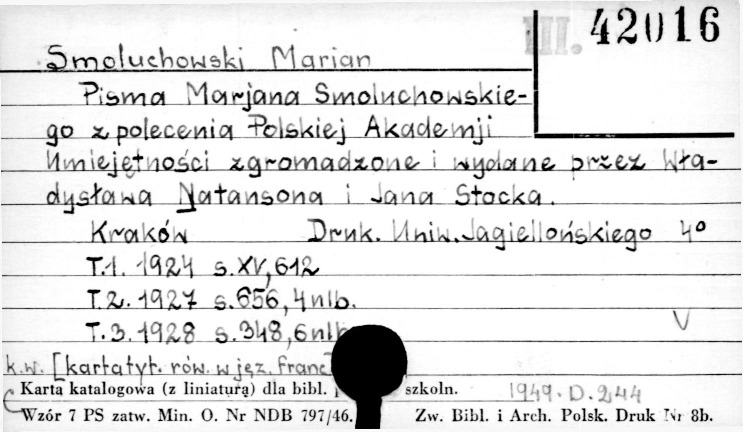 III. 42016
Smoluchowski Marian
Pisma Marjana Smoluchowskie-
go z polecenia Polskiej Akademji
Umiejętności zgromadzone i wydane przez Wła-
dysława Natansona i Jana Stocka.
Kraków Druk. Uniw. Jagiellońskiego 4°
T.1. 1924 s. XV, 612
T.2. 1927 s. 656, 4 nlb.
T.3. 1928 s. 348, 6 nlb
V
k.w. [karta tyt. rów. w jęz. franc
Karta katalogowa (z liniaturą) dla bibl. szkoln.
1949. D. 244
Wzór 7 PS zatw. Min. O. Nr NDB 797/46. Zw. Bibl. i Arch. Polsk. Druk Nr 8b.